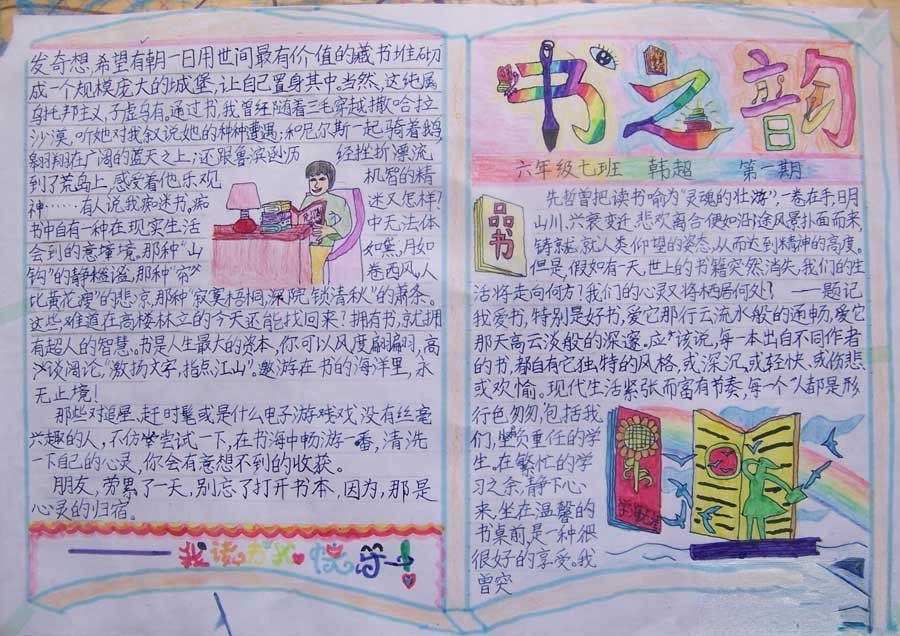 书之韵
六年级七班 韩超 第一期
品书
先哲曾把读书喻为“灵魂的壮游”,一卷在手,日月
山川,兴衰变迁,悲欢离合便如沿途风景扑面而来,
铸就人类仰望的姿态,从而达到精神的高度。
但是,假如有一天,世上的书籍突然消失,我们的生
活将走向何方?我们的心灵又将栖居何处? ——题记
我爱书,特别是好书,爱它那行云流水般的通畅,爱它
那天高云淡般的深邃。应该说,每一本出自不同作者
的书,都自有它独特的风格,或深沉,或轻快、或伤悲
或欢愉。现代生活紧张而富有节奏,每一个人都是形
行色匆匆,包括我
们,坐负重任的学
生。在繁忙的学
习之余,静下心
来,坐在温馨的
书桌前,是一种很
很好的享受。我
曾突
发奇想,希望有朝一日用世间最有价值的藏书堆砌
成一个规模庞大的城堡,让自己置身其中。当然,这纯属
乌托邦主义,子虚乌有。通过书,我曾经随着三毛穿越撒哈拉
沙漠,听她对我叙说她的种种遭遇;和尼尔斯一起骑着鹅,
翱翔在广阔的蓝天之上;还跟鲁滨逊历 经挫折漂流
到了荒岛上,感受着他乐观 机智的精
神……有人说我痴迷书。痴 迷又怎样?
书中自有一种在现实生活 中无法体
会到的意境。那种“山 如黛,月如
钩”的静谧,那种“帘 卷西风,人
比黄花瘦”的悲凉,那种“寂寞梧桐,深院,锁清秋”的萧条。
这些难道在高楼林立的今天还能找回来?拥有书,就拥
有超人的智慧。书是人生最大的资本,你可以风度翩翩,高
谈阔论,“激扬文字,指点江山”。遨游在书的海洋里,永
无止境!
那些对追星、赶时髦或是什么电子游戏戏没有丝毫
兴趣的人,不仿尝试一下,在书海中畅游一番,清洗
一下自己的心灵,你会有意想不到的收获。
朋友,劳累了一天,别忘了打开书本,因为,那是
心灵的归宿。